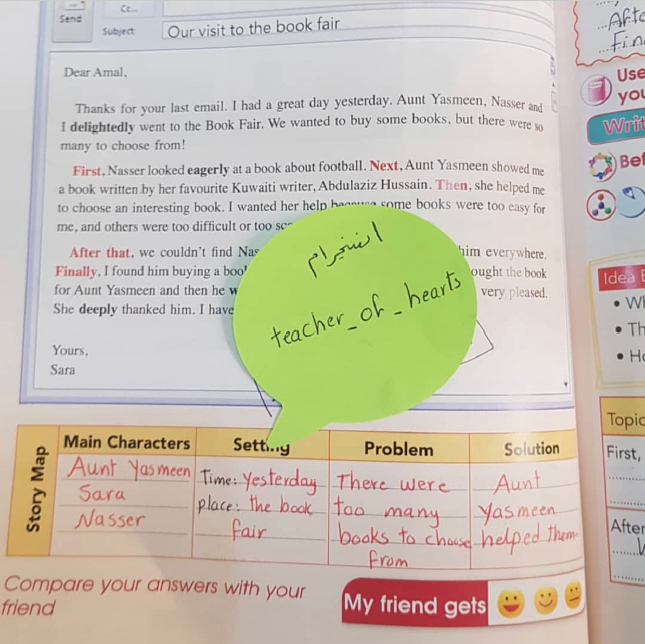 Send
Cc...
Subject:
Our visit to the book fair
Dear Amal,
Thanks for your last email. I had a great day yesterday. Aunt Yasmeen, Nasser and
I delightedly went to the Book Fair. We wanted to buy some books, but there were so
many to choose from!
First, Nasser looked eagerly at a book about football. Next, Aunt Yasmeen showed me
a book written by her favourite Kuwaiti writer, Abdulaziz Hussain. Then, she helped me
to choose an interesting book. I wanted her help because some books were too easy for
me, and others were too difficult or too
After that, we couldn't find
him everywhere.
Finally, I found him buying a
ought the book
for Aunt Yasmeen and then he
very pleased.
She deeply thanked him. I have
انستجرام
teacher_of_hearts
Yours,
Sara
Story Map
Main Characters
Setting
Problem
Solution
Aunt Yasmeen
Sara
Nasser
Time: Yesterday
place: the book
fair
There were
too many
books to choose
from
Aunt
Yasmeen
helped them
Compare your answers with your
friend
My friend gets
Use
you
Writ
Bef
Idea
• Wh
• Th
• Ho
Topic
First,
After